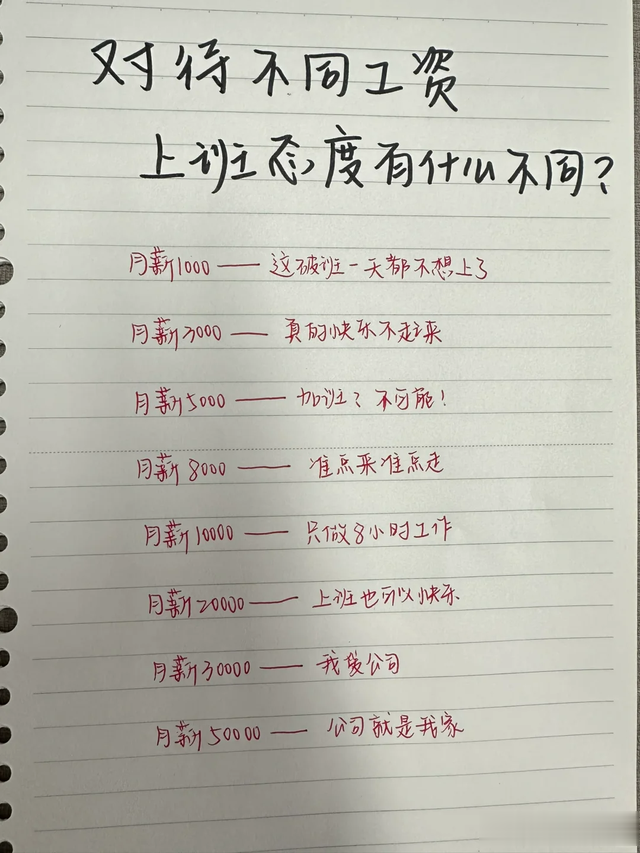 对待不同工资
上班态度有什么不同?
月薪1000——这破班一天都不想上了
月薪3000——真的快乐不起来
月薪5000——加班?不可能!
月薪8000——准点来准点走
月薪10000——只做8小时工作
月薪20000——上班也可以快乐
月薪30000——我爱公司
月薪50000——公司就是我家